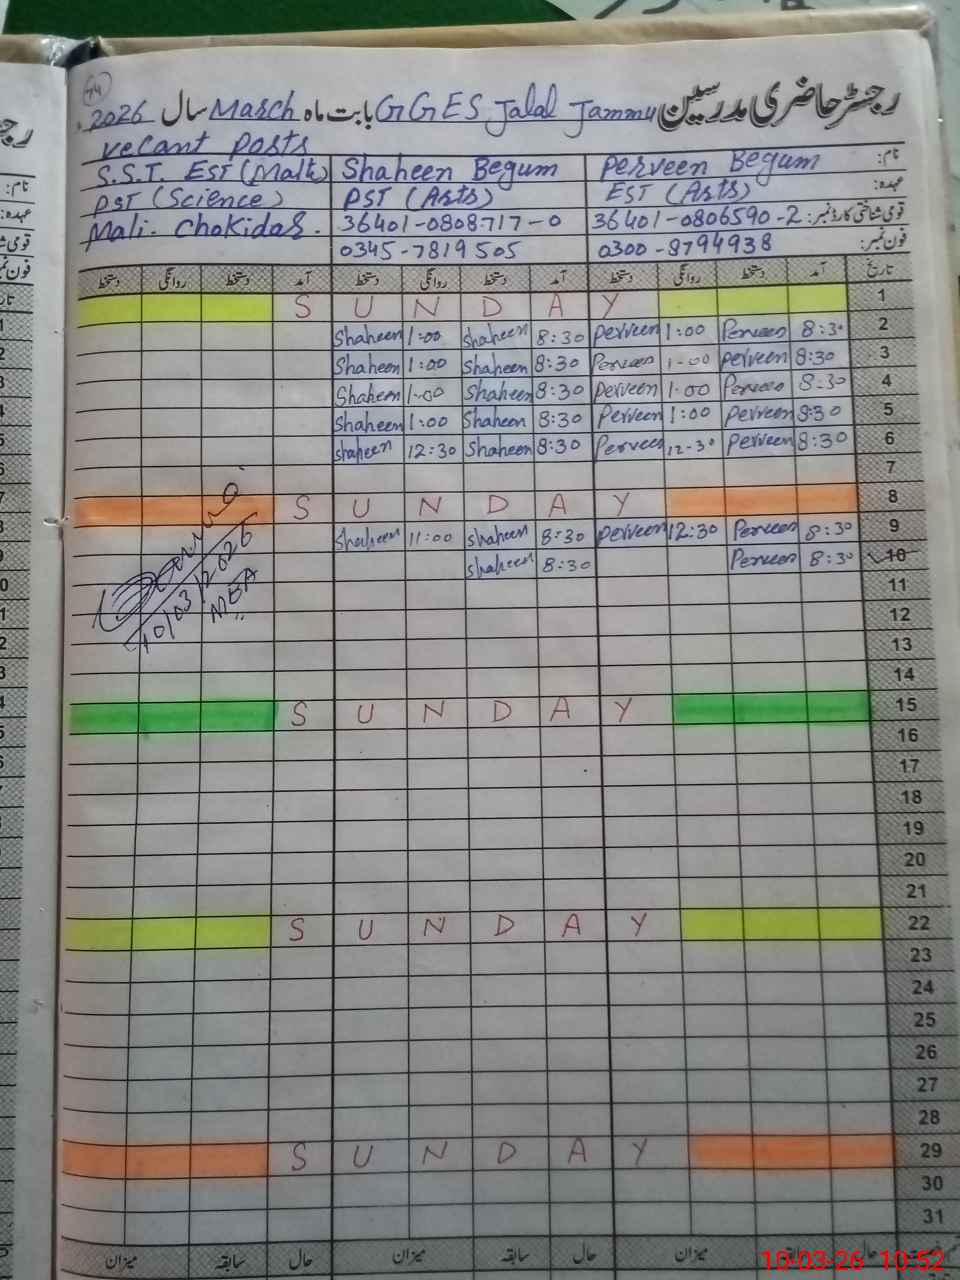 94
رجسٹر حاضری مدرسین GGES Jalal Jammu بابت ماہ March سال 2026
vecant posts
S.S.T. EST (Math) Shaheen Begum Perveen Begum نام:
PST (Science) PST (Arts) EST (Arts) عہدہ:
Mali. Chokidar. 36401-0808717-0 36401-0806590-2 قومی شناختی کارڈ نمبر:
0345-7819505 0300-8794938 فون نمبر:
تاریخ آمد دستخط روانگی دستخط آمد دستخط روانگی دستخط آمد دستخط روانگی دستخط
S U N D A Y 1
Shaheen 1:00 Shaheen 8:30 Perveen 1:00 Perveen 8:30 2
Shaheen 1:00 Shaheen 8:30 Perveen 1-00 Perveen 8:30 3
Shaheen 1-00 Shaheen 8:30 Perveen 1.00 Perveen 8-30 4
Shaheen 1:00 Shaheen 8:30 Perveen 1:00 Perveen 8:30 5
Shaheen 12:30 Shaheen 8:30 Perveen 12-30 Perveen 8:30 6
7
S U N D A Y 8
Shaheen 11:00 Shaheen 8:30 Perveen 12:30 Perveen 8:30 9
Shaheen 8:30 Perveen 8:30 10
10/03/2026
MEA
11
12
13
14
S U N D A Y 15
16
17
18
19
20
21
S U N D A Y 22
23
24
25
26
27
28
S U N D A Y 29
30
31
حال سابقہ میزان حال سابقہ میزان حال سابقہ میزان
10-03-26 10:52